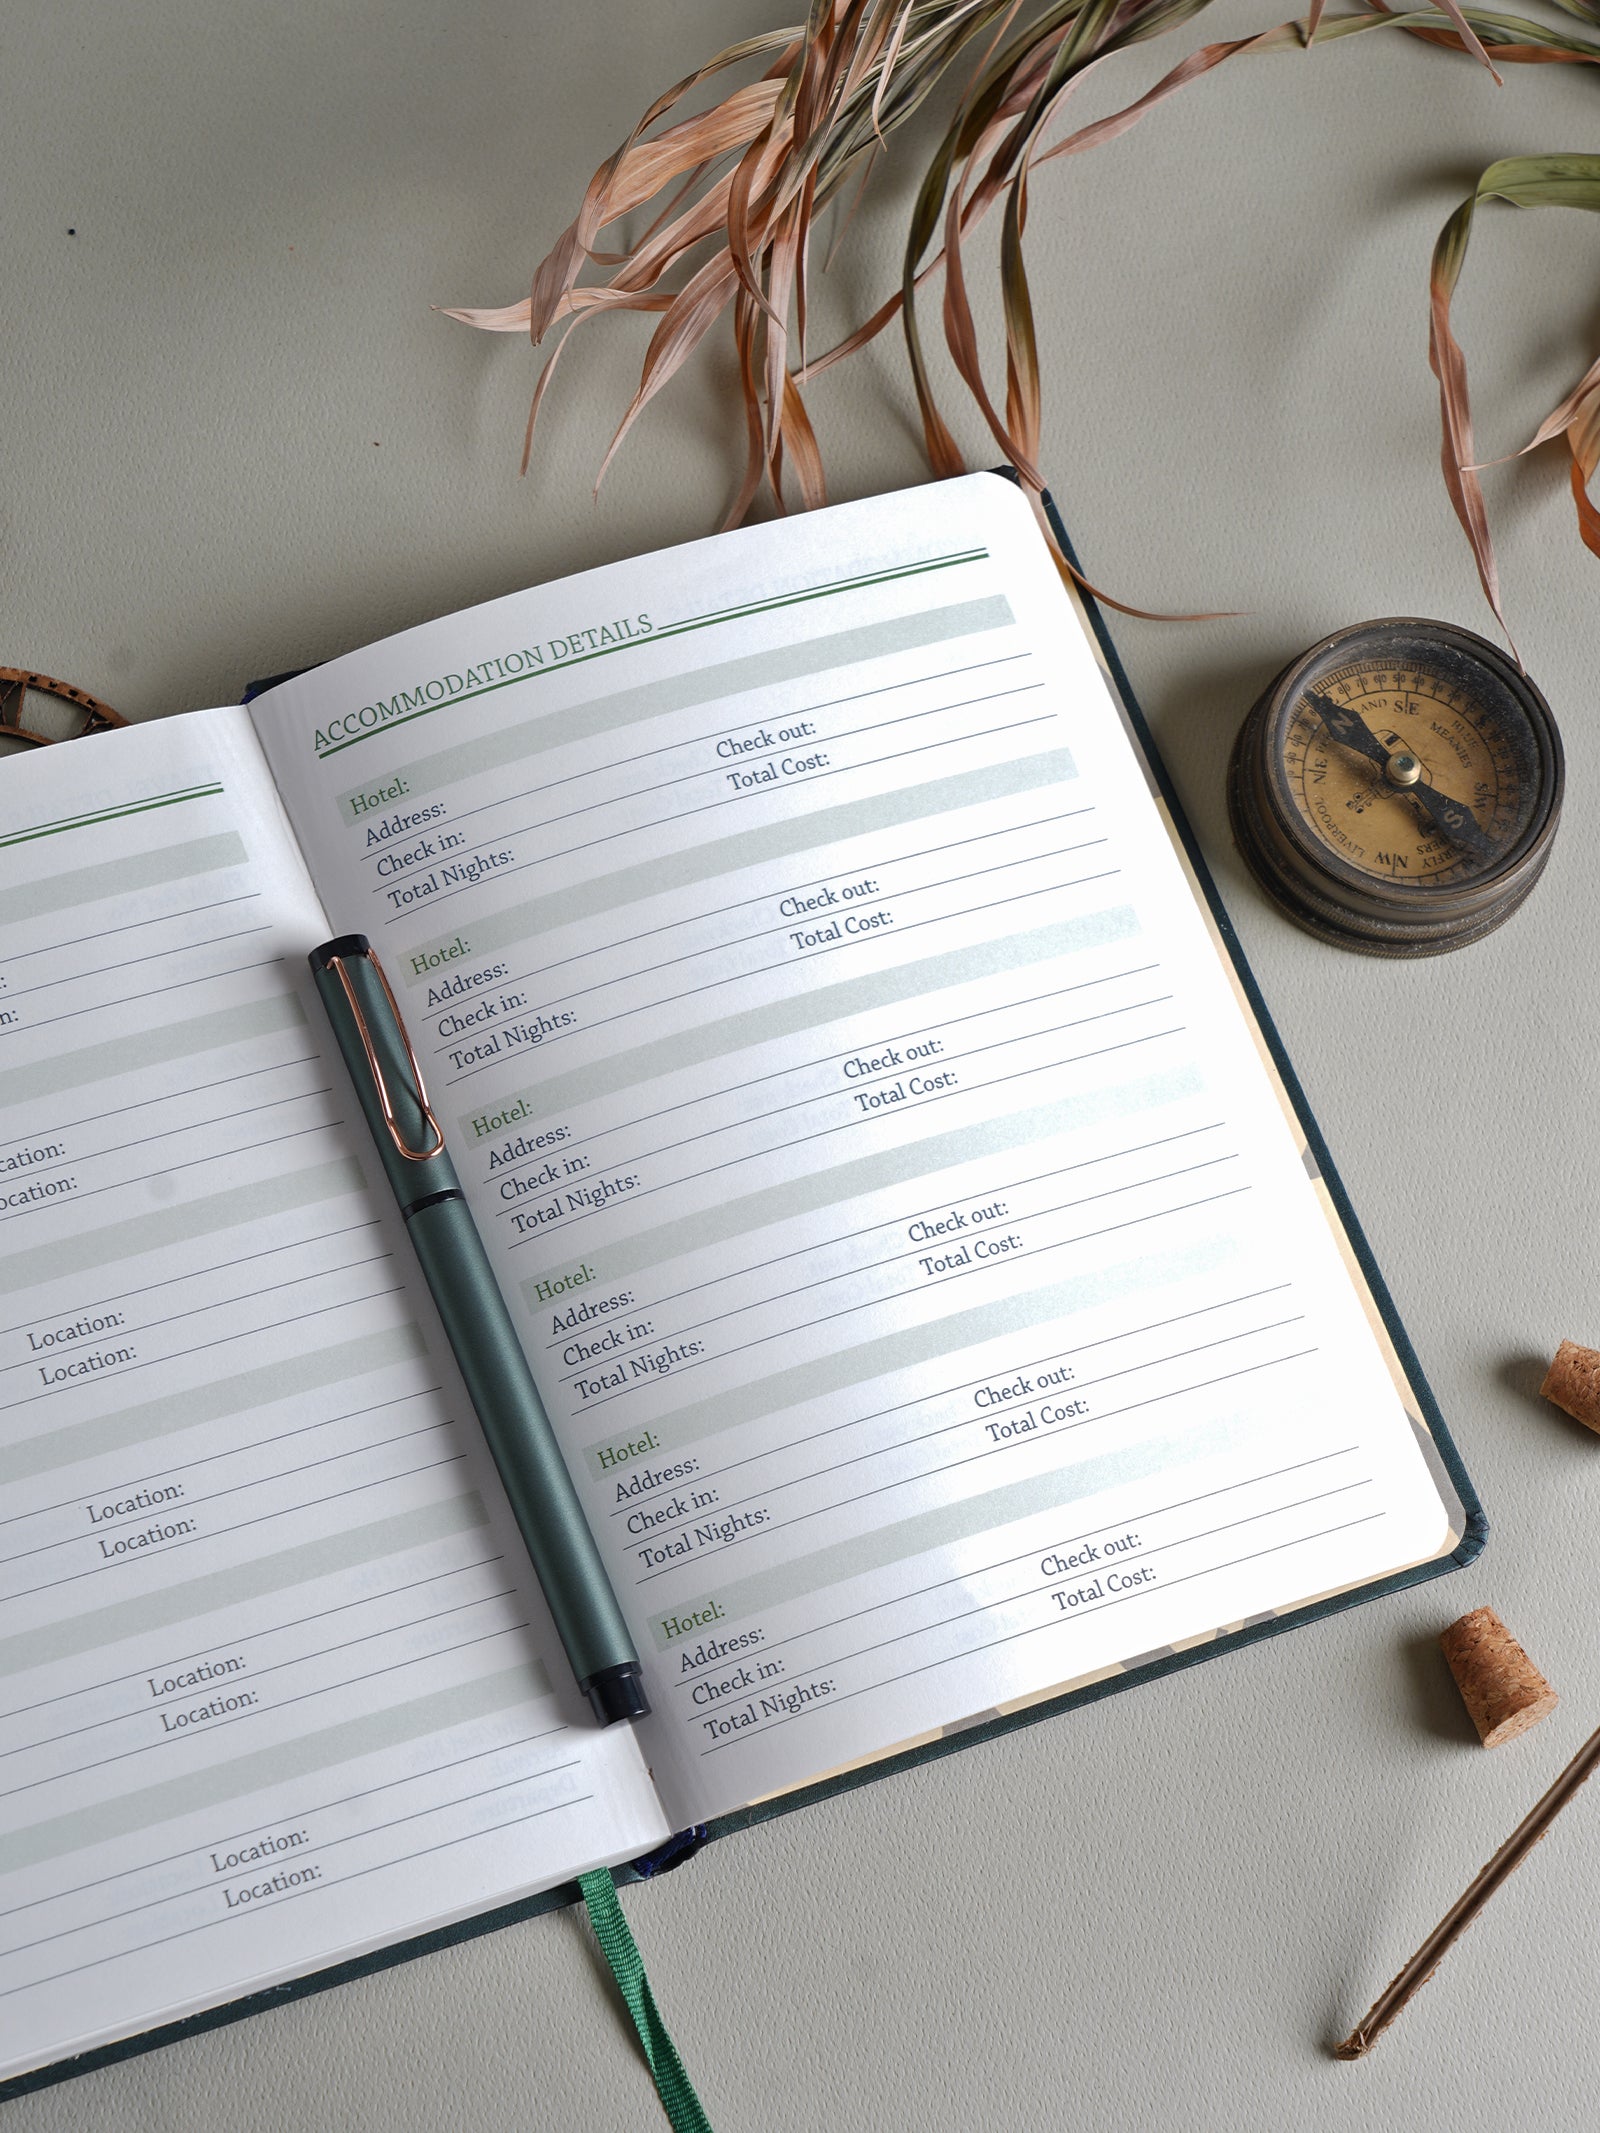 cation:
ocation:
Location:
Location:
Location:
Location:
Location:
Location:
Location:
Location:
ACCOMMODATION DETAILS
Hotel:
Address:
Check in: Check out:
Total Nights: Total Cost:
Hotel:
Address:
Check in: Check out:
Total Nights: Total Cost:
Hotel:
Address:
Check in: Check out:
Total Nights: Total Cost:
Hotel:
Address:
Check in: Check out:
Total Nights: Total Cost:
Hotel:
Address:
Check in: Check out:
Total Nights: Total Cost:
Hotel:
Address:
Check in: Check out:
Total Nights: Total Cost:
N
S
AND
S|E
BLUE
MEANIES
S|W
N|W
LIVERPOOL
N|E